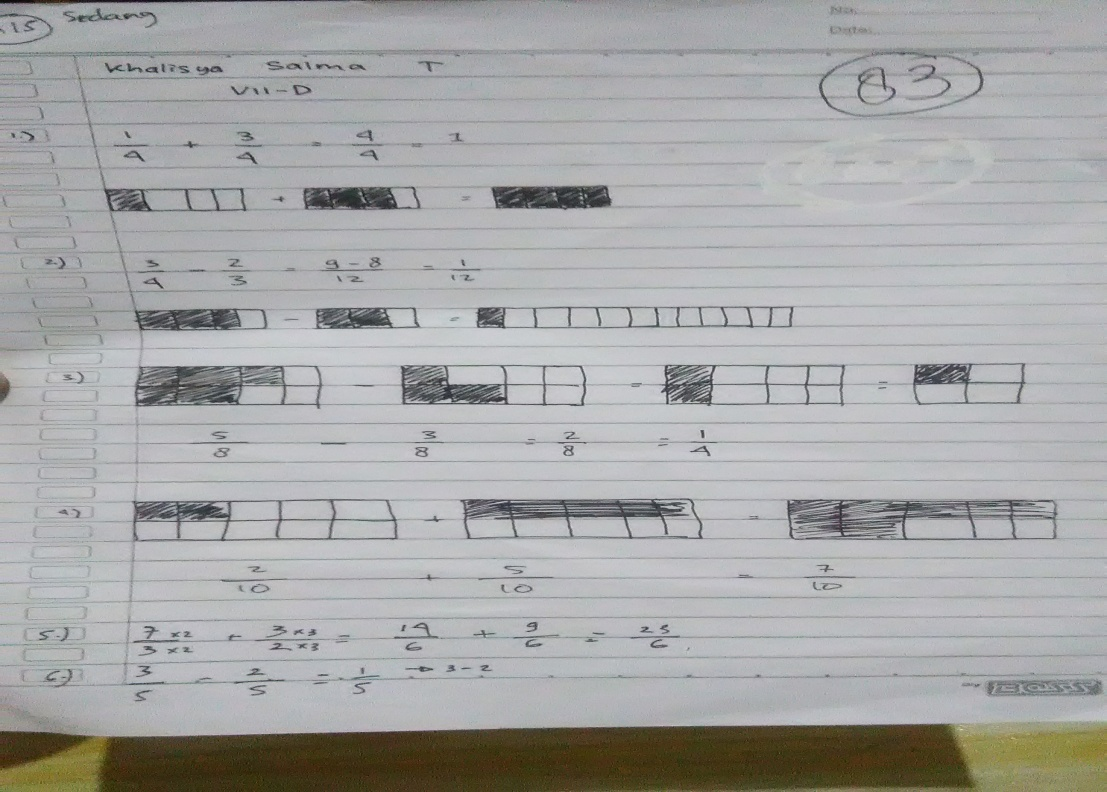 15 Sedang
No.
Date:
Khalisya Salma T
VII-D
83
1.) 1/4 + 3/4 = 4/4 = 1
+ =
2.) 3/4 - 2/3 = 9-8/12 = 1/12
- =
3.) - = =
5/8 - 3/8 = 2/8 = 1/4
4.) + =
2/10 + 5/10 = 7/10
5.) 7×2/3×2 + 3×3/2×3 = 14/6 + 9/6 = 23/6
6.) 3/5 - 2/5 = 1/5 → 3-2